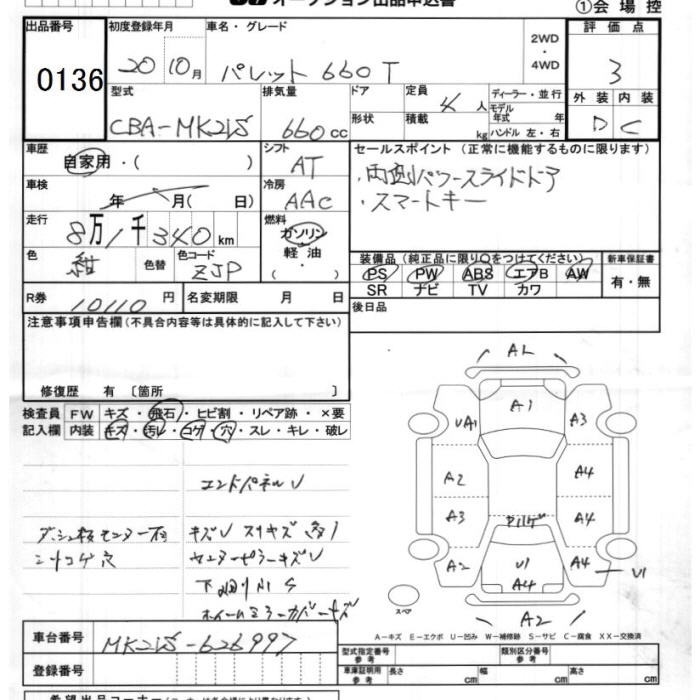 オークション出品申込書
①会場控
出品番号 初度登録年月 車名・グレード 評価点
0136 20 10月 パレット 660 T 2WD・4WD 3
型式 排気量 ドア 定員 4 人 ディーラー・並行 外装 内装
CBA-MK21S 660 cc 形状 積載 kg モデル年式 年 ハンドル 左・右 D C
車歴 シフト セールスポイント (正常に機能するものに限ります)
自家用・( ) AT ・両側パワースライドドア
車検 年 月( 日) 冷房 AAC ・スマートキー
走行 8万1千340km 燃料 ガソリン
色 紺 色替 色コード ZJP 軽油 ( ・ )
装備品 (純正品に限り○をつけてください) 新車保証書
PS PW ABS エアB AW 有・無
SR ナビ TV カワ
R券 10110円 名変期限 月 日 後日品
注意事項申告欄 (不具合内容等は具体的に記入して下さい)
修復歴 有 〔箇所 〕
検査員 FW キズ・飛石・ヒビ割・リペア跡・×要
記入欄 内装 キズ・汚レ・コゲ・穴・スレ・キレ・破レ
エンドパネルU
シリコゲ穴
AL
UA1 A1 A3
A2 A4
A3 A4
A2 U1 A4 A4 U1
A2
スペア
A-キズ E-エクボ U-凹み W-補修跡 S-サビ C-腐食 XX-交換済
車台番号 MK21S-626997
登録番号
型式指定番号 参考 類別区分番号 参考
車庫証明用 参考 長さ cm 幅 cm 高さ cm